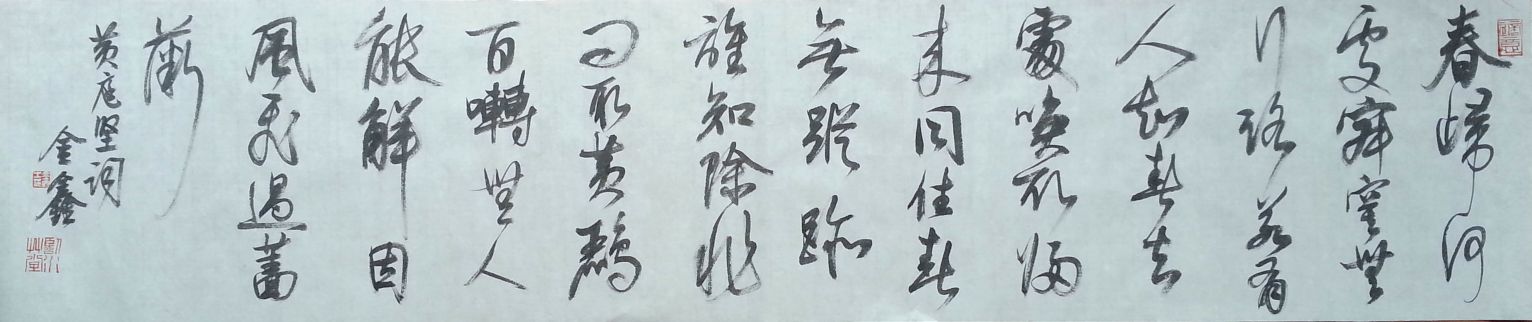 春歸何
處寂寞無
行路若有
人知春去
處唤取歸
来同住春
無蹤跡
誰知除非
问取黄鸝
百囀無人
能解因
風飛過薔
薇
黄庭坚词
金鑫